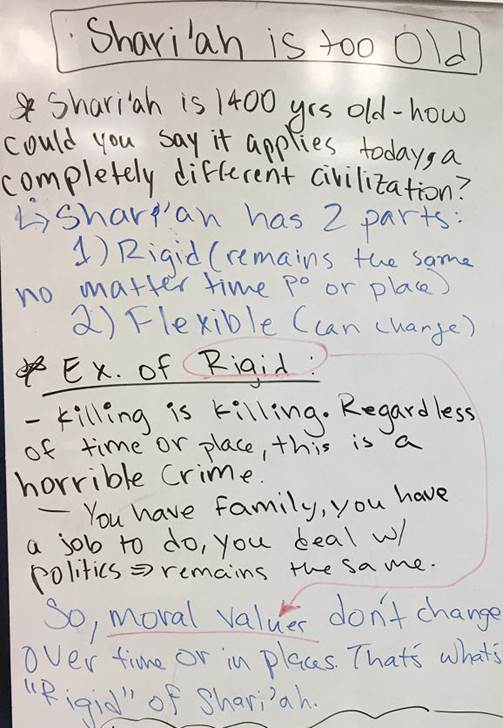 Shari'ah is too Old
* Shari'ah is 1400 yrs old - how
could you say it applies today, a
completely different civilization?
↳ Shari'ah has 2 parts:
1) Rigid (remains the same
no matter time po or place)
2) Flexible (can change)
* Ex. of Rigid:
- Killing is killing. Regardless
of time or place, this is a
horrible crime.
- You have family, you have
a job to do, you deal w/
politics ⇒ remains the same.
So, moral values don't change
over time or in places. That's what's
"Rigid" of Shari'ah.